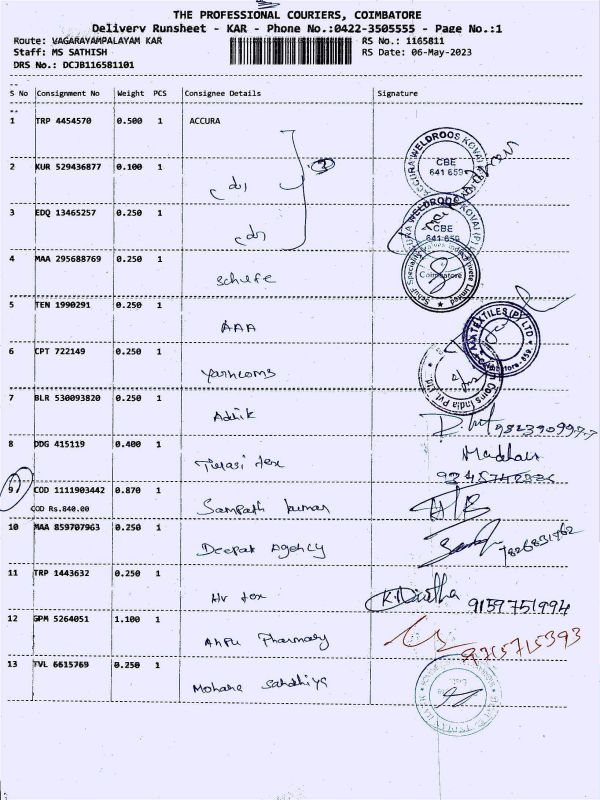 THE PROFESSIONAL COURIERS, COIMBATORE
Delivery Runsheet - KAR - Phone No.:0422-3505555 - Page No.:1
Route: VAGARAYAMPALAYAM KAR
RS No.: 1165811
Staff: MS SATHISH
RS Date: 06-May-2023
DRS No.: DCJB116581101
S No Consignment No Weight PCS Consignee Details Signature
1 TRP 4454570 0.500 1 ACCURA
ACCURA WELDROOS KOVAI (P)
CBE
641 659
2 KUR 529436877 0.100 1
3
3 EDQ 13465257 0.250 1
WELDROOS KOVAI (P)
CBE
641 659
4 MAA 295688769 0.250 1
Coimbatore
5 TEN 1990291 0.250 1
AAA
TEXTILES (P) LTD
6 CPT 722149 0.250 1
Coins India Pvt Ltd.
7 BLR 530093820 0.250 1
8 DDG 415119 0.400 1
Tulasi tex
Madhav
9 COD 1111903442 0.870 1
COD Rs.840.00
Sampath kumar
10 MAA 859707963 0.250 1
Deepak Agency
11 TRP 1443632 0.250 1
9159751994
12 GPM 5264051 1.100 1
Pharmacy
9715715393
13 TVL 6615769 0.250 1
Mohana